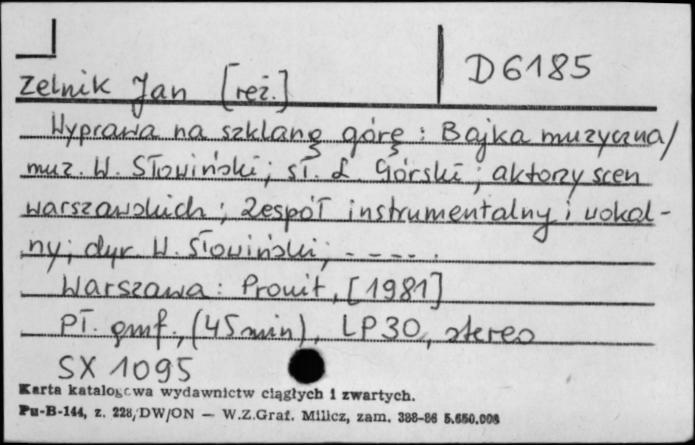 D 6185
Zelnik Jan [reż.]
Wyprawa na szklaną górę : Bajka muzyczna /
muz. W. Słowiński ; sł. L. Górski ; aktorzy scen
warszawskich ; Zespół instrumentalny i wokal-
ny ; dyr. W. Słowiński ; - - - - .
Warszawa : Pronit, [1981]
Pł. gmf., (45 min), LP 30, stereo
SX 1095
Karta katalogowa wydawnictw ciągłych i zwartych.
Pu-B-144, z. 228/DW/ON — W.Z.Graf. Milicz, zam. 388-86 5.650.000